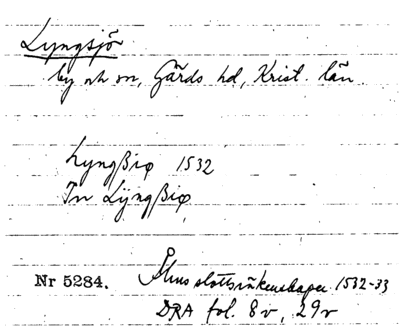 Lyngsjö
by och sn, Gärds hd, Krist. län
Lyngßiø 1532
Im Lÿngßiø
Åhus slottsräkenskaper 1532-33
Nr 5284.
DRA fol. 8v, 29v